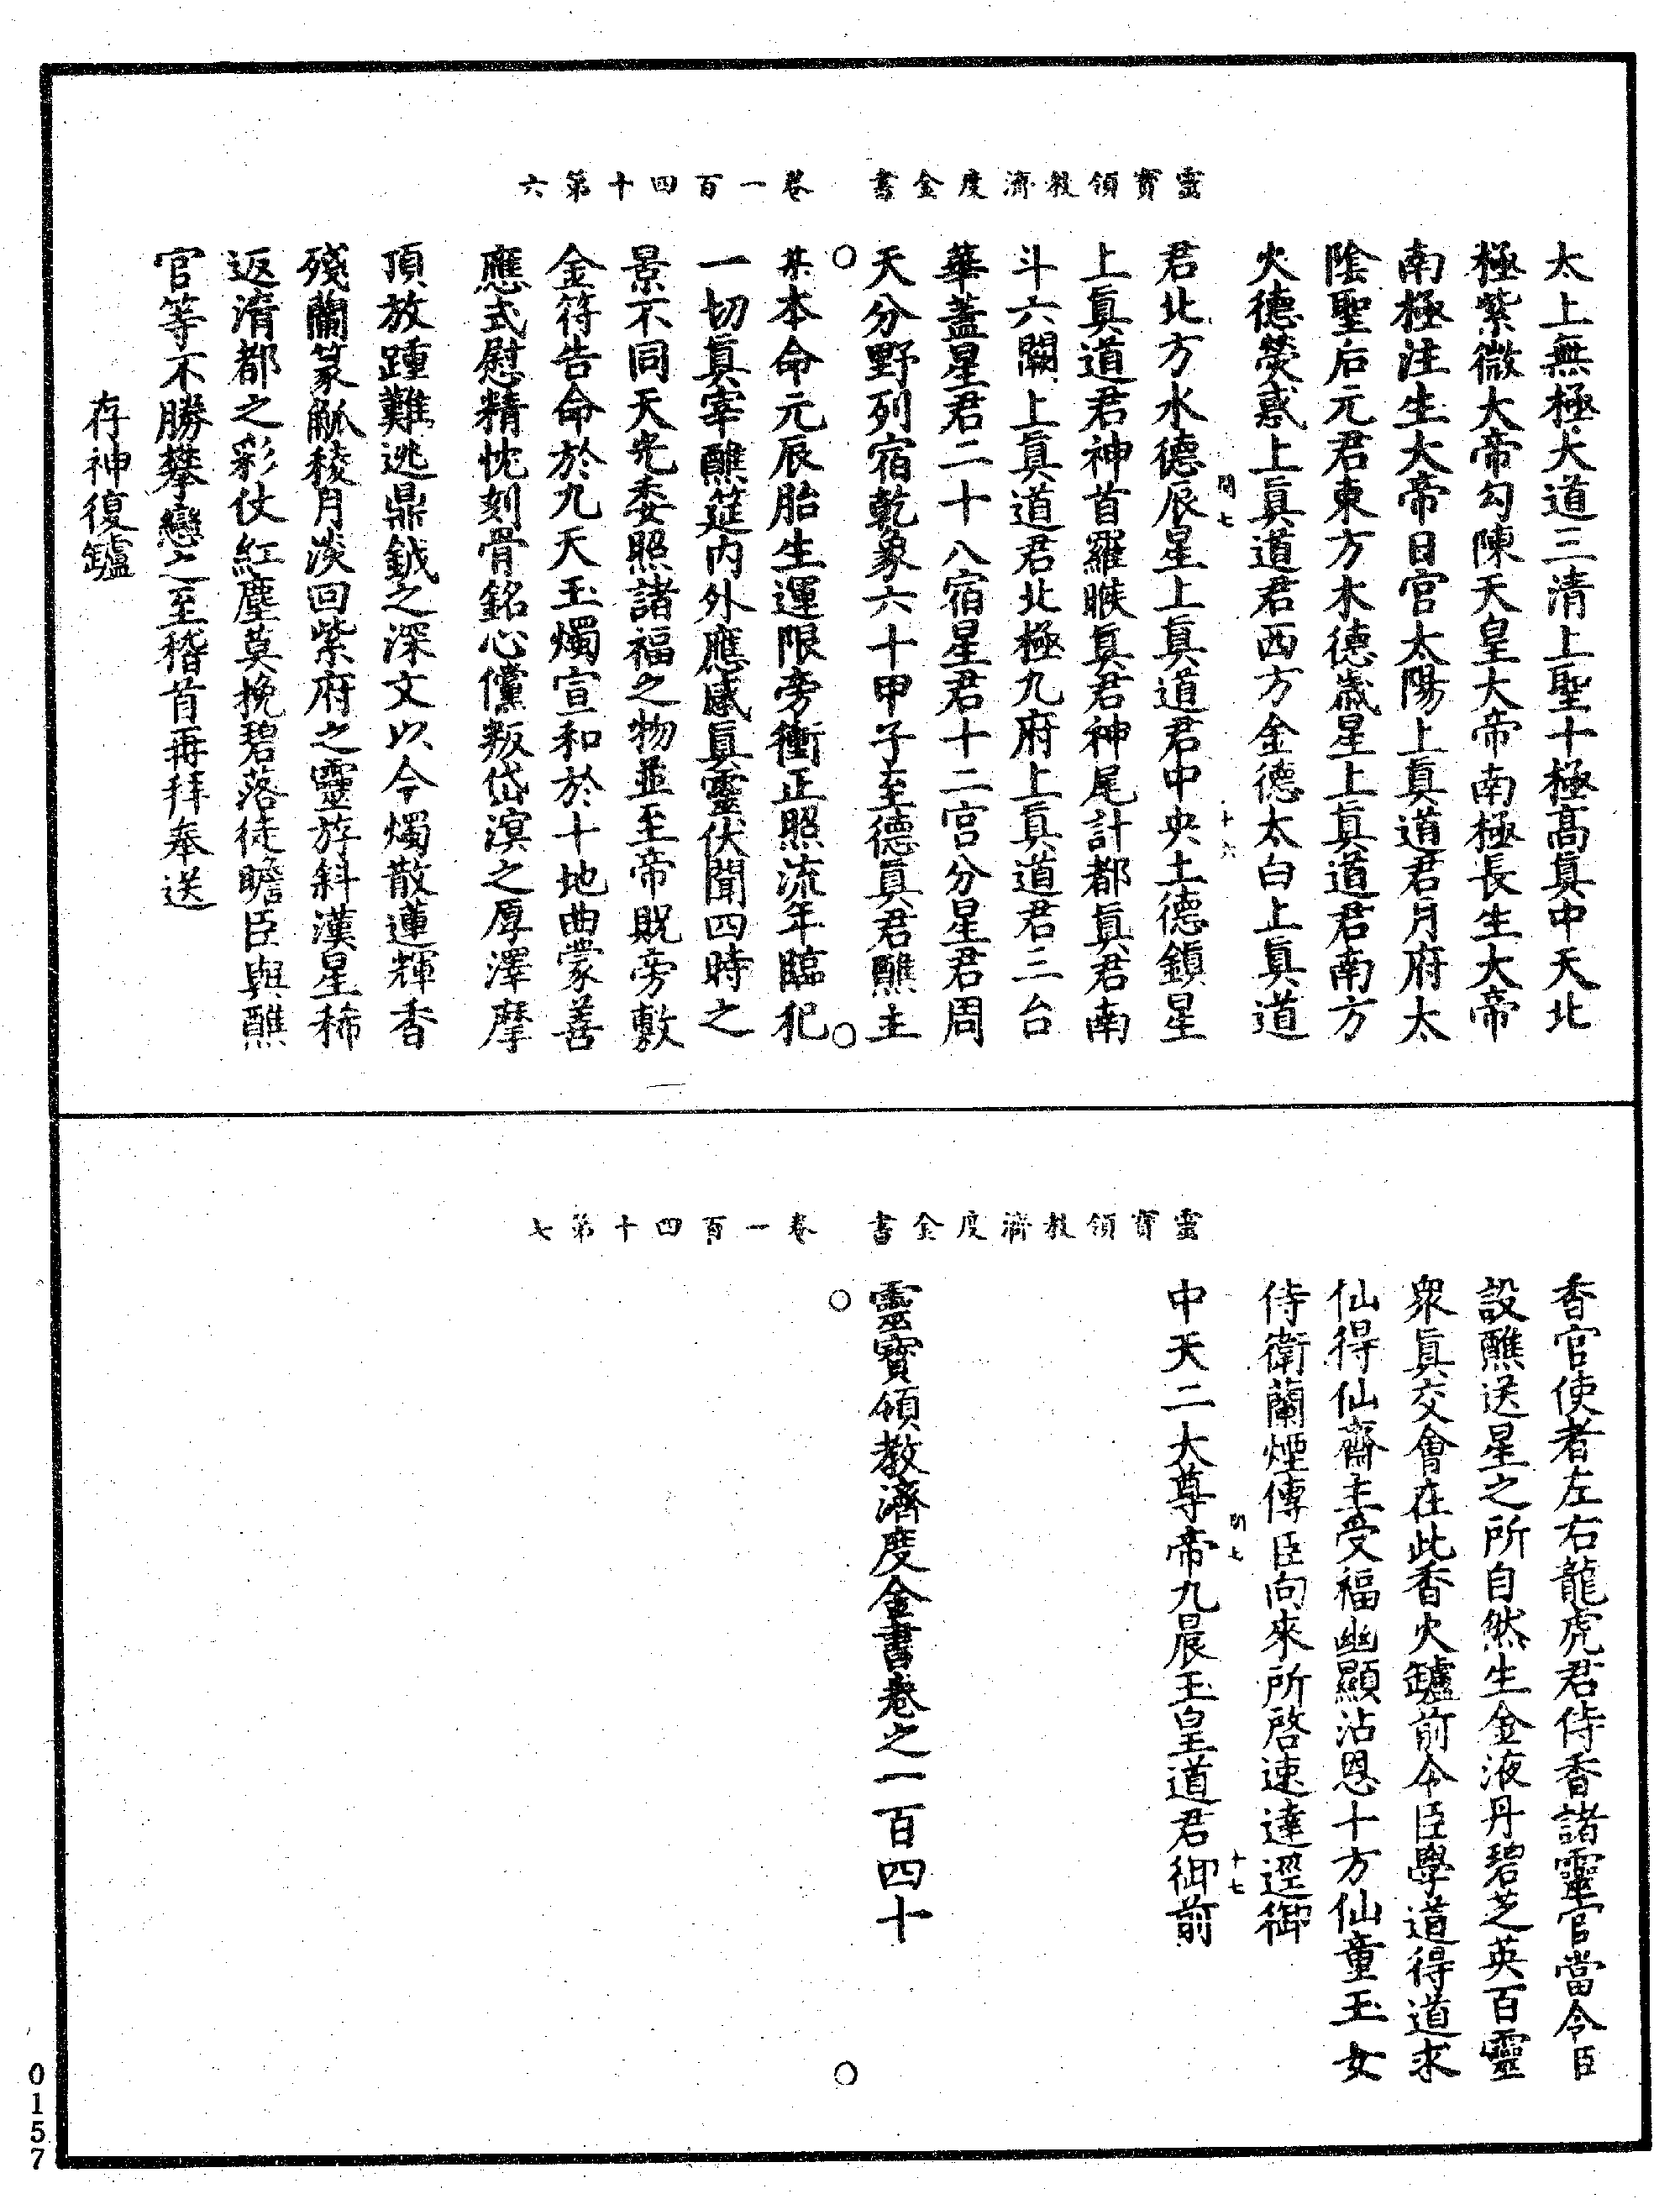 靈寶領教濟度金書　卷一百四十第六
太上無極大道三清上聖十極高眞中天北
極紫微大帝勾陳天皇大帝南極長生大帝
南極注生大帝日宮太陽上眞道君月府太
陰聖后元君東方木德歲星上眞道君南方
火德熒惑上眞道君西方金德太白上眞道
開七　十六
君北方水德辰星上眞道君中央土德鎭星
上眞道君神首羅睺眞君神尾計都眞君南
斗六闕上眞道君北極九府上眞道君三台
華蓋星君二十八宿星君十二宮分星君周
天分野列宿乾象六十甲子至德眞君醮主
某本命元辰胎生運限旁衝正照流年臨犯
一切眞宰醮筵內外應感眞靈伏聞四時之
景不同天光委照諸福之物並至帝貺旁敷
金符告命於九天玉燭宣和於十地曲蒙善
應式慰精忱刻骨銘心儻叛岱溟之厚澤摩
頂放踵難逃鼎鉞之深文以今燭散蓮輝香
殘蘭篆觚稜月淡回紫府之靈斿斜漢星稀
返清都之彩仗紅塵莫挽碧落徒瞻臣與醮
官等不勝攀戀之至稽首再拜奉送
存神復鑪
靈寶領教濟度金書　卷一百四十第七
香官使者左右龍虎君侍香諸靈官當令臣
設醮送星之所自然生金液丹碧芝英百靈
衆眞交會在此香火鑪前令臣學道得道求
仙得仙齋主受福幽顯沾恩十方仙童玉女
侍衛蘭煙傳臣向來所啓速達逕御
開七　十七
中天二大尊帝九晨玉皇道君御前
靈寶領教濟度金書卷之一百四十
0157